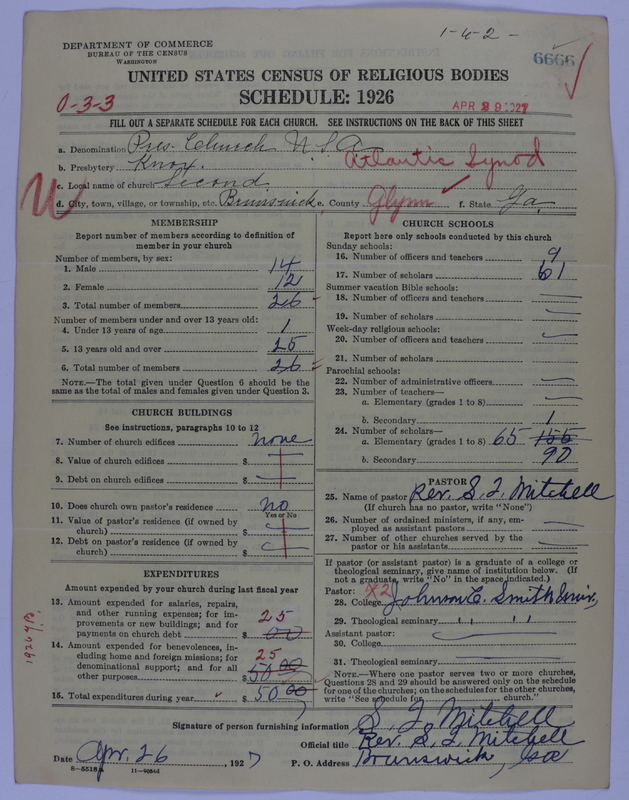 1-4-2-
DEPARTMENT OF COMMERCE
BUREAU OF THE CENSUS
WASHINGTON
6666
UNITED STATES CENSUS OF RELIGIOUS BODIES
SCHEDULE: 1926
0-3-3
APR 29 1927
FILL OUT A SEPARATE SCHEDULE FOR EACH CHURCH. SEE INSTRUCTIONS ON THE BACK OF THIS SHEET
a. Denomination Pres. Church U S A
b. Presbytery Knox. Atlantic Synod
c. Local name of church Second
d. City, town, village, or township, etc. Brunswick e. County Glynn f. State Ga.
MEMBERSHIP
Report number of members according to definition of
member in your church
Number of members, by sex:
1. Male 14
2. Female 12
3. Total number of members 26
Number of members under and over 13 years old:
4. Under 13 years of age 1
5. 13 years old and over 25
6. Total number of members 26
NOTE.—The total given under Question 6 should be the
same as the total of males and females given under Question 3.
CHURCH BUILDINGS
See instructions, paragraphs 10 to 12
7. Number of church edifices none
8. Value of church edifices $
9. Debt on church edifices $
10. Does church own pastor's residence no
Yes or No
11. Value of pastor's residence (if owned by
church) $
12. Debt on pastor's residence (if owned by
church) $
EXPENDITURES
Amount expended by your church during last fiscal year
13. Amount expended for salaries, repairs,
and other running expenses; for im-
provements or new buildings; and for
payments on church debt $ 25 00
14. Amount expended for benevolences, in-
cluding home and foreign missions; for
denominational support; and for all
other purposes $ 25 50 00
15. Total expenditures during year $ 50 00
CHURCH SCHOOLS
Report here only schools conducted by this church
Sunday schools:
16. Number of officers and teachers 9
17. Number of scholars 61
Summer vacation Bible schools:
18. Number of officers and teachers
19. Number of scholars
Week-day religious schools:
20. Number of officers and teachers
21. Number of scholars
Parochial schools:
22. Number of administrative officers
23. Number of teachers—
a. Elementary (grades 1 to 8)
b. Secondary 1
24. Number of scholars—
a. Elementary (grades 1 to 8) 65 155
b. Secondary 90
PASTOR
25. Name of pastor Rev. S. J. Mitchell
(If church has no pastor, write "None")
26. Number of ordained ministers, if any, em-
ployed as assistant pastors
27. Number of other churches served by the
pastor or his assistants
If pastor (or assistant pastor) is a graduate of a college or
theological seminary, give name of institution below. (If
not a graduate, write "No" in the space indicated.)
Pastor: X2
28. College Johnson C. Smith Univ.
29. Theological seminary " "
Assistant pastor:
30. College
31. Theological seminary
NOTE.—Where one pastor serves two or more churches,
Questions 28 and 29 should be answered only on the schedule
for one of the churches; on the schedules for the other churches,
write "See schedule for church."
Signature of person furnishing information S. J. Mitchell
Official title Rev. S. J. Mitchell
Date Apr. 26, 1927 P. O. Address Brunswick, Ga
11—9084